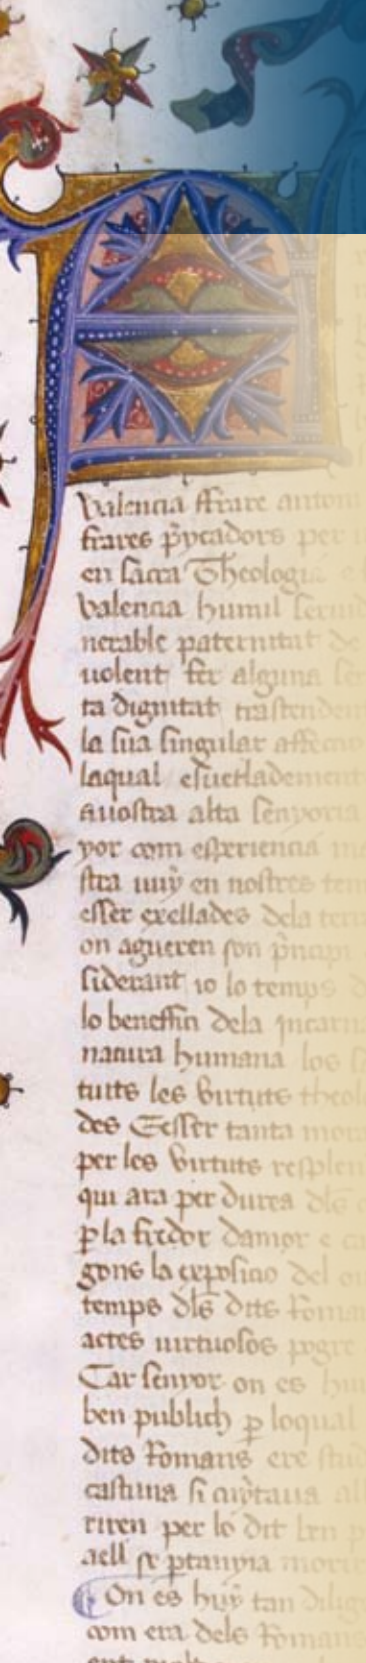 A
Valencia ffrare anton
frares pycadors per
en sacra Theologia e
Valencia humil seruid
nerable paternitat de
uolent fer alguna
ta dignitat trastendem
la sua singular affeccio
laqual esuetladement
auostra alta senyoria
yor com esperiencia
stra uuy en nostres tem
esser exellades dela terr
on agueren son princip
siderant io lo temps
lo beneffici dela incarna
natura humana los
tuits les Virtuts theol
des Eesser tanta mora
per les Virtuts resplen
qui ara per durea dls
p la fredor damor e ca
gons la exposicio del
temps dls dits Roma
actes uirtuosos pogre
Car senyor on es huy
ben publich p loqual
dits Romans ere stud
castuna si all
riren per lo dit ben p
aell se ptanyia morir
On es huy tan dilig
com era dels Romans